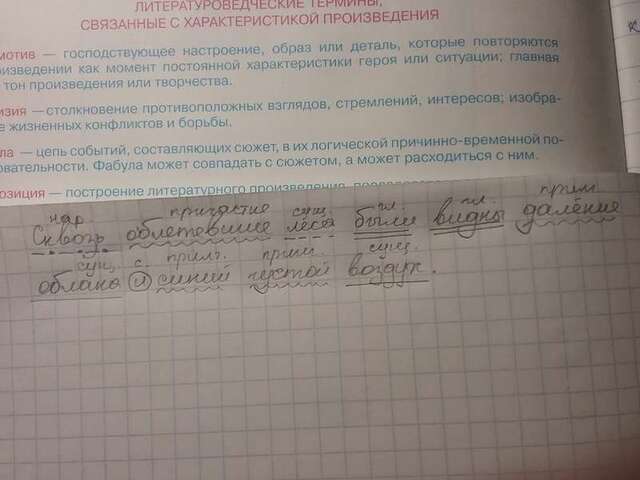 ЛИТЕРАТУРОВЕДЧЕСКИЕ ТЕРМИНЫ,
СВЯЗАННЫЕ С ХАРАКТЕРИСТИКОЙ ПРОИЗВЕДЕНИЯ
мотив — господствующее настроение, образ или деталь, которые повторяются
оизведении как момент постоянной характеристики героя или ситуации; главная
тон произведения или творчества.
изия — столкновение противоположных взглядов, стремлений, интересов; изобра-
е жизненных конфликтов и борьбы.
ла — цепь событий, составляющих сюжет, в их логической причинно-временной по-
овательности. Фабула может совпадать с сюжетом, а может расходиться с ним.
позиция — построение литературного произведения,
нар причастие сущ. гл. гл. прил
Сквозь облетевшие леса были видны далёкие
сущ, с. прил. прил. сущ.
облака и синий густой воздух.